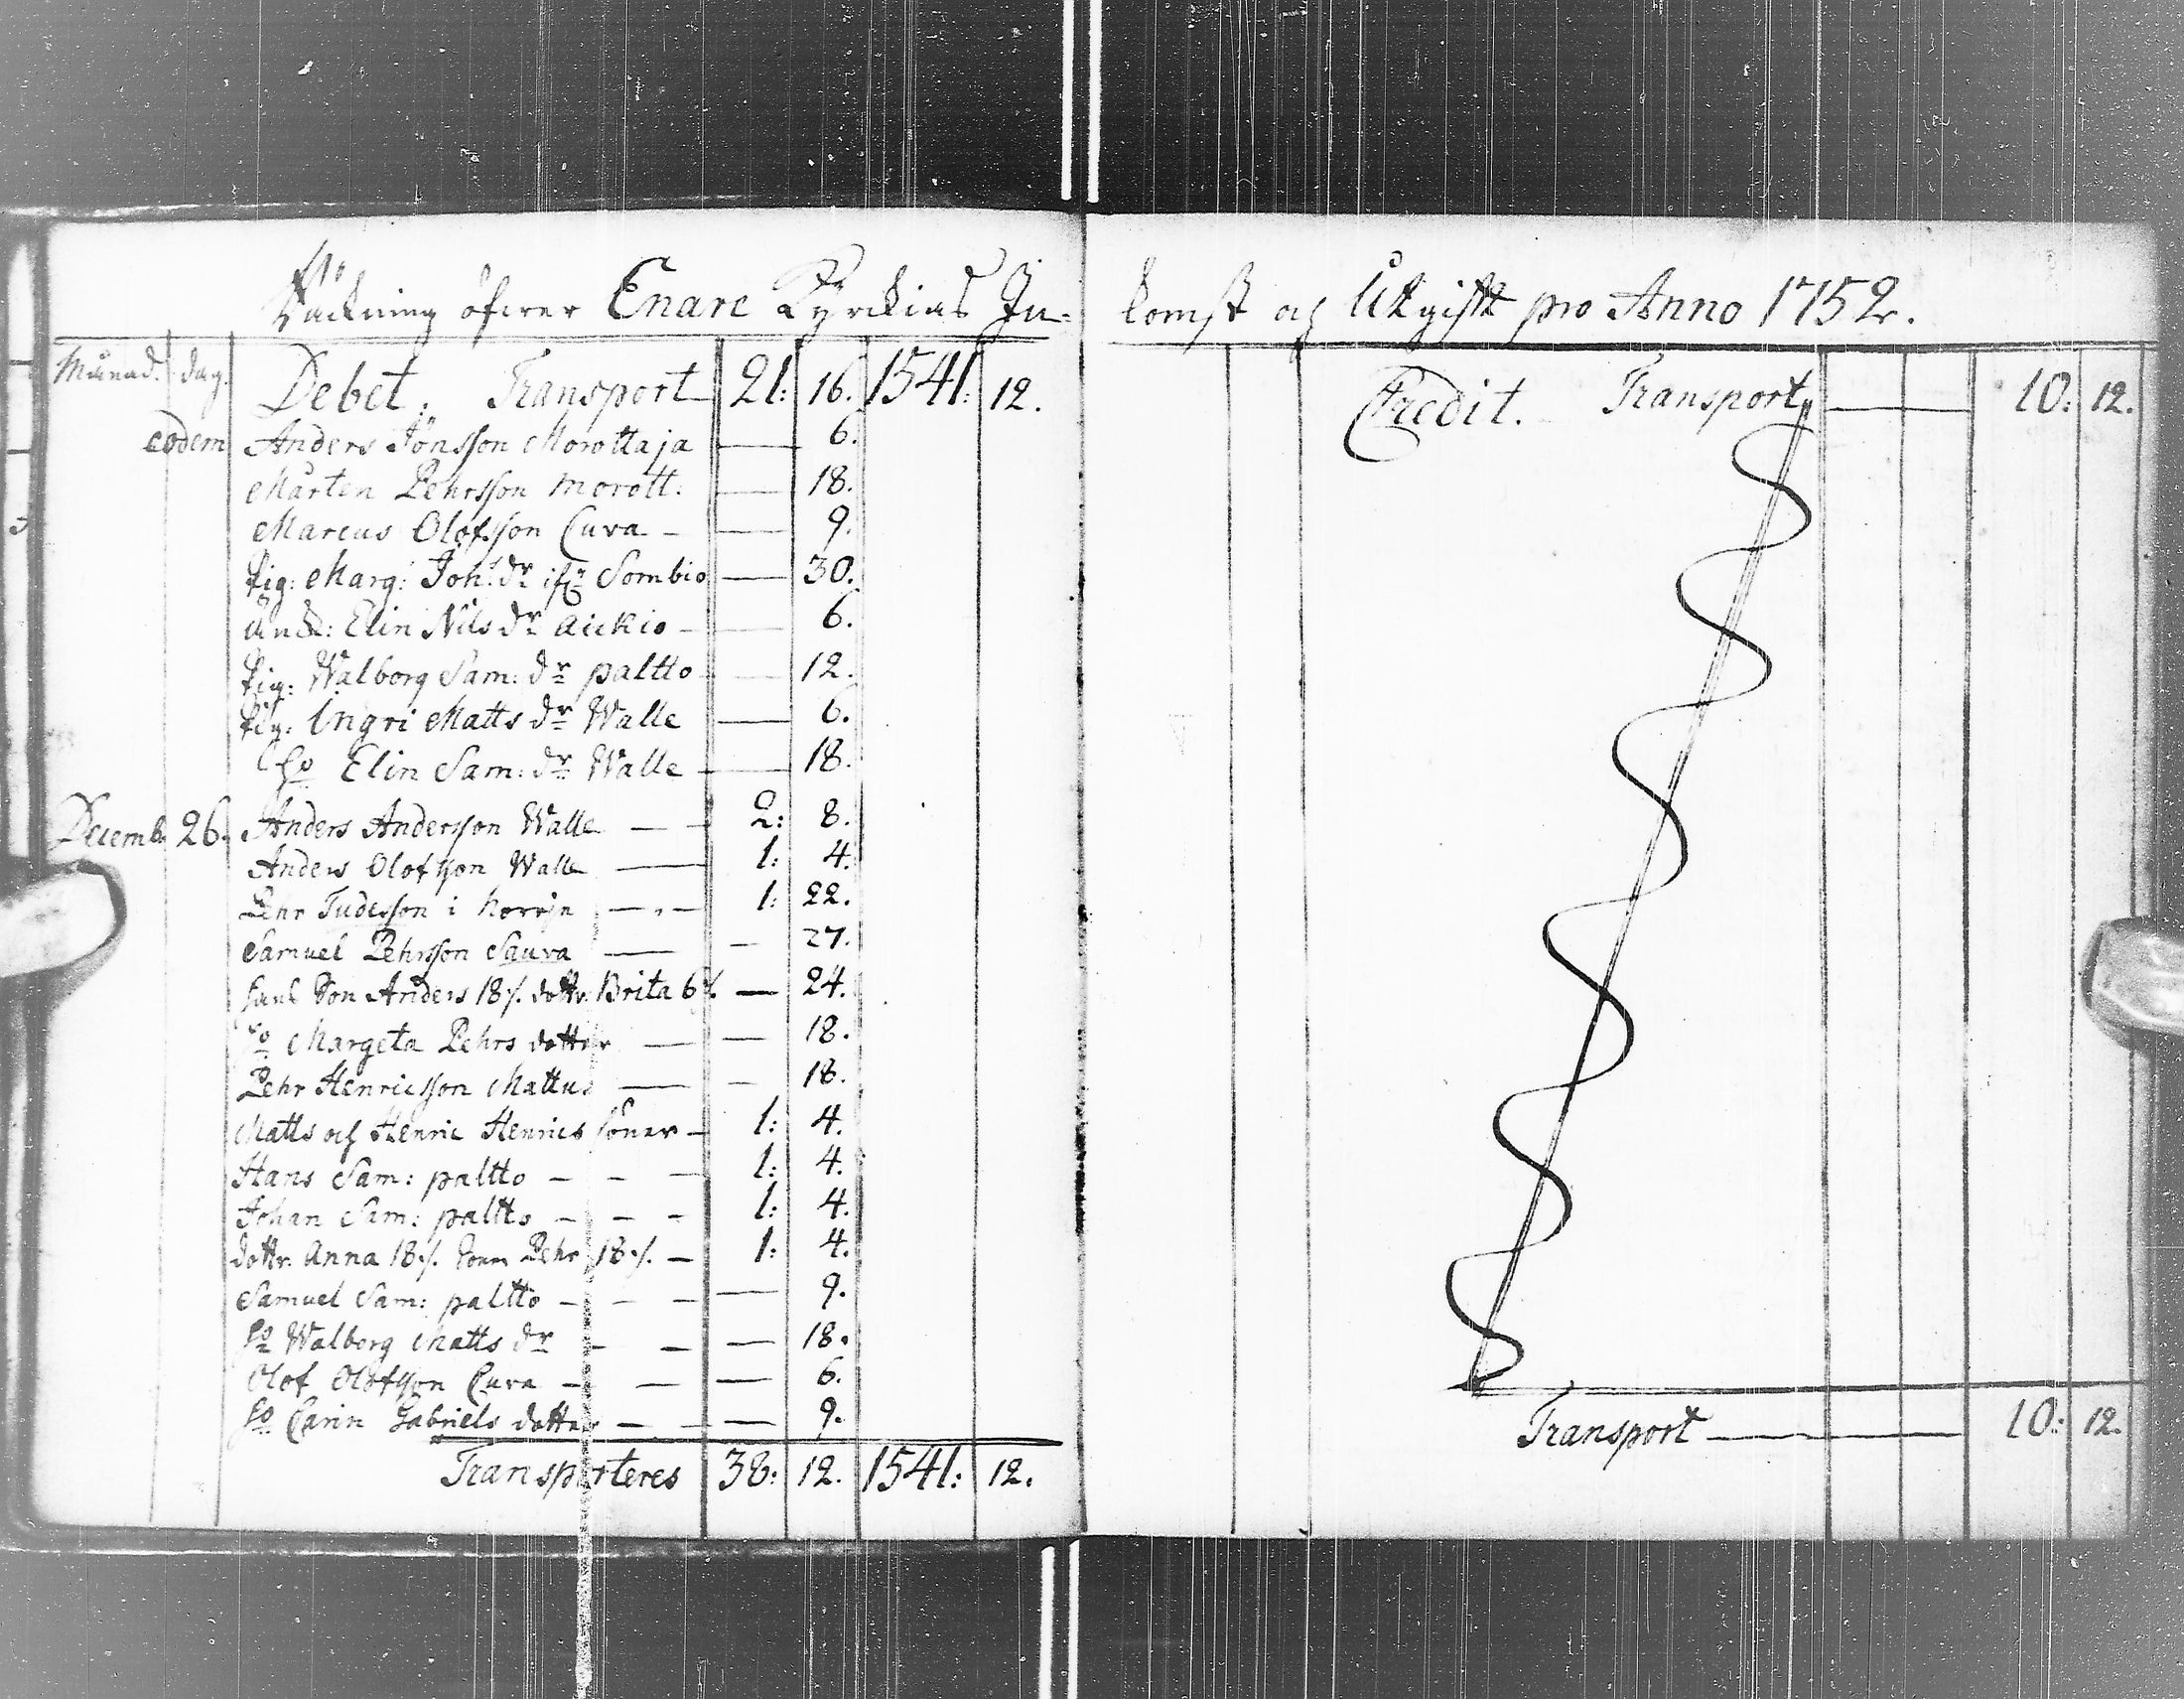 Räckning öfwer Enare Kyrckias In-
Månad. dag. Debet. Transport 21: 16. 1541: 12.
eodem Anders Jönsson Morottaja — 6.
Mårten Pehrsson Morott: — 18.
Marcus Olofsson Cuva — 9.
Pig: Marg: Joh: dr Sombio — 30.
Enk: Elin Nils dr Aickio — 6.
Pig: Walborg Sam: dr paltto — 12.
Pig: Ingri Matts dr Walle — 6.
Elin Sam: dr Walle — 18.
Decemb. 26. Anders Andersson Walle — 2: 8.
Anders Olofsson Walle — 1: 4.
Pehr Judesson i Norrje — 1: 22.
Samuel Pehrsson Saura — 27.
hans Son Anders 18 ⁒. dottr. Brita 6 ⁒. — 24.
Margeta Pehrs dotter — 18.
Pehr Henricsson Mattus — 18.
Matts och Henric Henrics söner — 1: 4.
Hans Sam: paltto — 1: 4.
Johan Sam: paltto — 1: 4.
dottr. Anna 18 ⁒. Sonen Pehr 18 ⁒. — 1: 4.
Samuel Sam: paltto — 9.
Walborg Matts dr — 18.
Olof Olofsson Cuva — 6.
Carin Gabriels dotter — 9.
Transporteres 38: 12. 1541: 12.
komst och Utgifft pro Anno 1752.
Credit. Transport — 10: 12.
Transport — 10: 12.